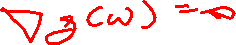 ∇g(w) = 0